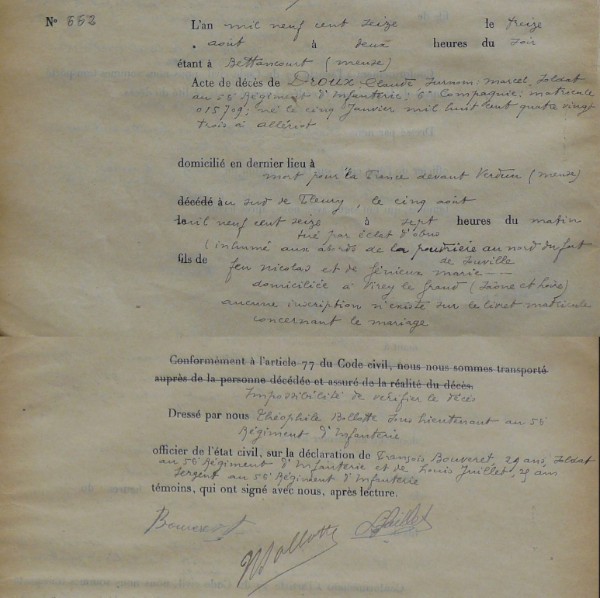 N° 552
L'an mil neuf cent seize le treize
août à deux heures du soir
étant à Bettancourt (meuse)
Acte de décès de Droux Claude marcel, Soldat
au 56e Régiment d'Infanterie; 6e Compagnie; matricule
015709; né le cinq Janvier mil huit cent quatre vingt
trois à allériot
domicilié en dernier lieu à
mort pour la France devant Verdun (meuse)
décédé au sud de Fleury, le cinq août
le mil neuf cent seize à sept heures du matin
tué par éclat d'obus
(inhumé aux abords de la poudrière au nord du fort
de Souville
fils de feu nicolas et de Génieux marie
domiciliée à Virey le grand (Saône et Loire)
aucune inscription n'existe sur le livret matricule
concernant le mariage
Conformément à l'article 77 du Code civil, nous nous sommes transporté
auprès de la personne décédée et assuré de la réalité du décès.
Impossibilité de vérifier le décès
Dressé par nous Théophile Sous Lieutenant au 56e
Régiment d'Infanterie
officier de l'état civil, sur la déclaration de François Bouveret, 29 ans, Soldat
au 56e Régiment d'Infanterie et de Louis Juillet, 25 ans
Sergent au 56e Régiment d'Infanterie
témoins, qui ont signé avec nous, après lecture.
Bouveret